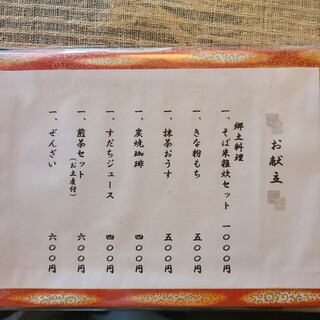 お献立
郷土料理
一、そば米雑炊セット 一〇〇〇円
一、きな粉もち 五〇〇円
一、抹茶おうす 五〇〇円
一、炭焼珈琲 四〇〇円
一、すだちジュース 四〇〇円
一、煎茶セット(お土産付) 六〇〇円
一、ぜんざい 六〇〇円